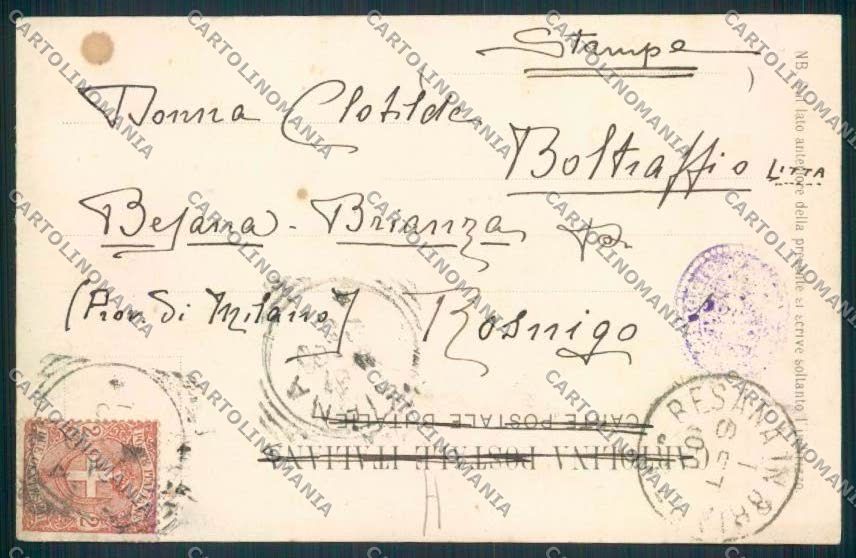 Stampe
Donna Clotilde
Boltraffio LITTA
Besana-Brianza per
(Prov. di Milano) Rosnigo
CARTE POSTALE D'ITALIE
CARTOLINA POSTALE ITALIANA
NB. Sul lato anteriore della presente si scrive soltanto l'indirizzo
BESANA IN BRI
2 2
CARTOLINOMANIA